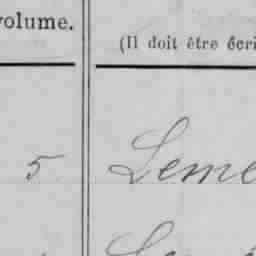 volume.
(Il doit être écri
5 Leme